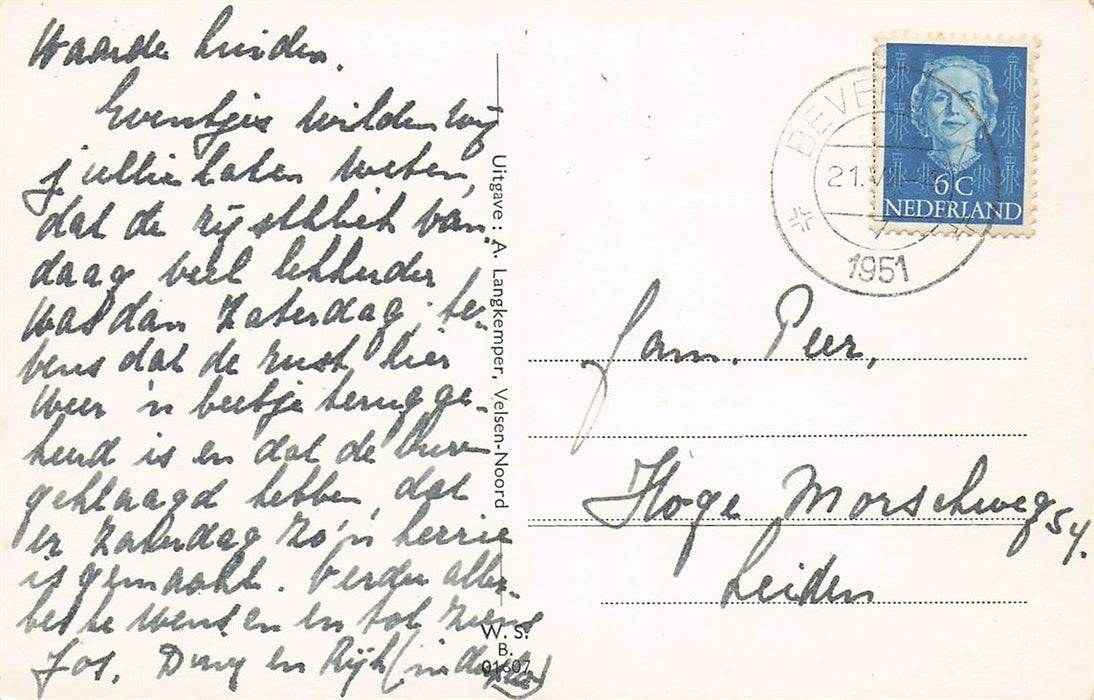 Waarde Luiden.
Eventjes wilden wij
jullie laten weten,
dat de rijsttbliet van-
daag veel lekkerder
was dan Zaterdag, te-
vens dat de rust hier
weer 'n beetje terugge-
keerd is en dat de buren
geklaagd hebben, dat
er Zaterdag zo'n herrie
is gemaakt. Verder aller-
beste wensen en tot ziens
Jos, Dury en Rijk (in dopho)
Uitgave : A. Langkemper, Velsen-Noord
W. S.
B.
01607
BEVE
21.V
1951
6 C
NEDERLAND
Fam. Peer,
Hoge Morschweg 54.
Leiden